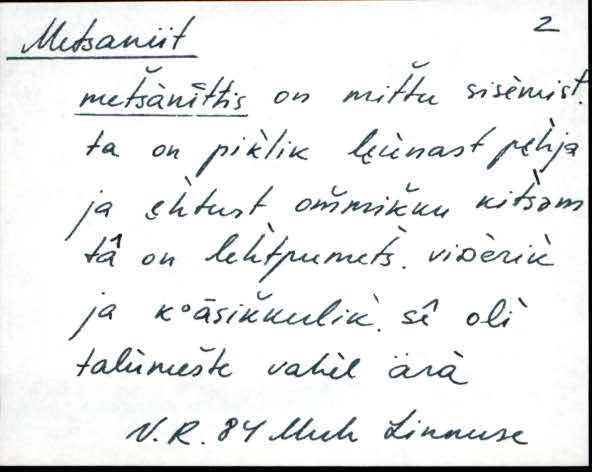 Metsaniit 2
metšànît̀tis on mit̆tu sisèmist.
ta on pik̀lik lɛùnast pɛh̀ja
ja ɛh̀tust om̆mik̆ku kitsàm
tâ on leh̀tpumets̀. vis̀èrik̀
ja k°āsik̆kulik̀. sê olì
talùmešte vahèl ärà
V.R. 84 Muh Linnuse